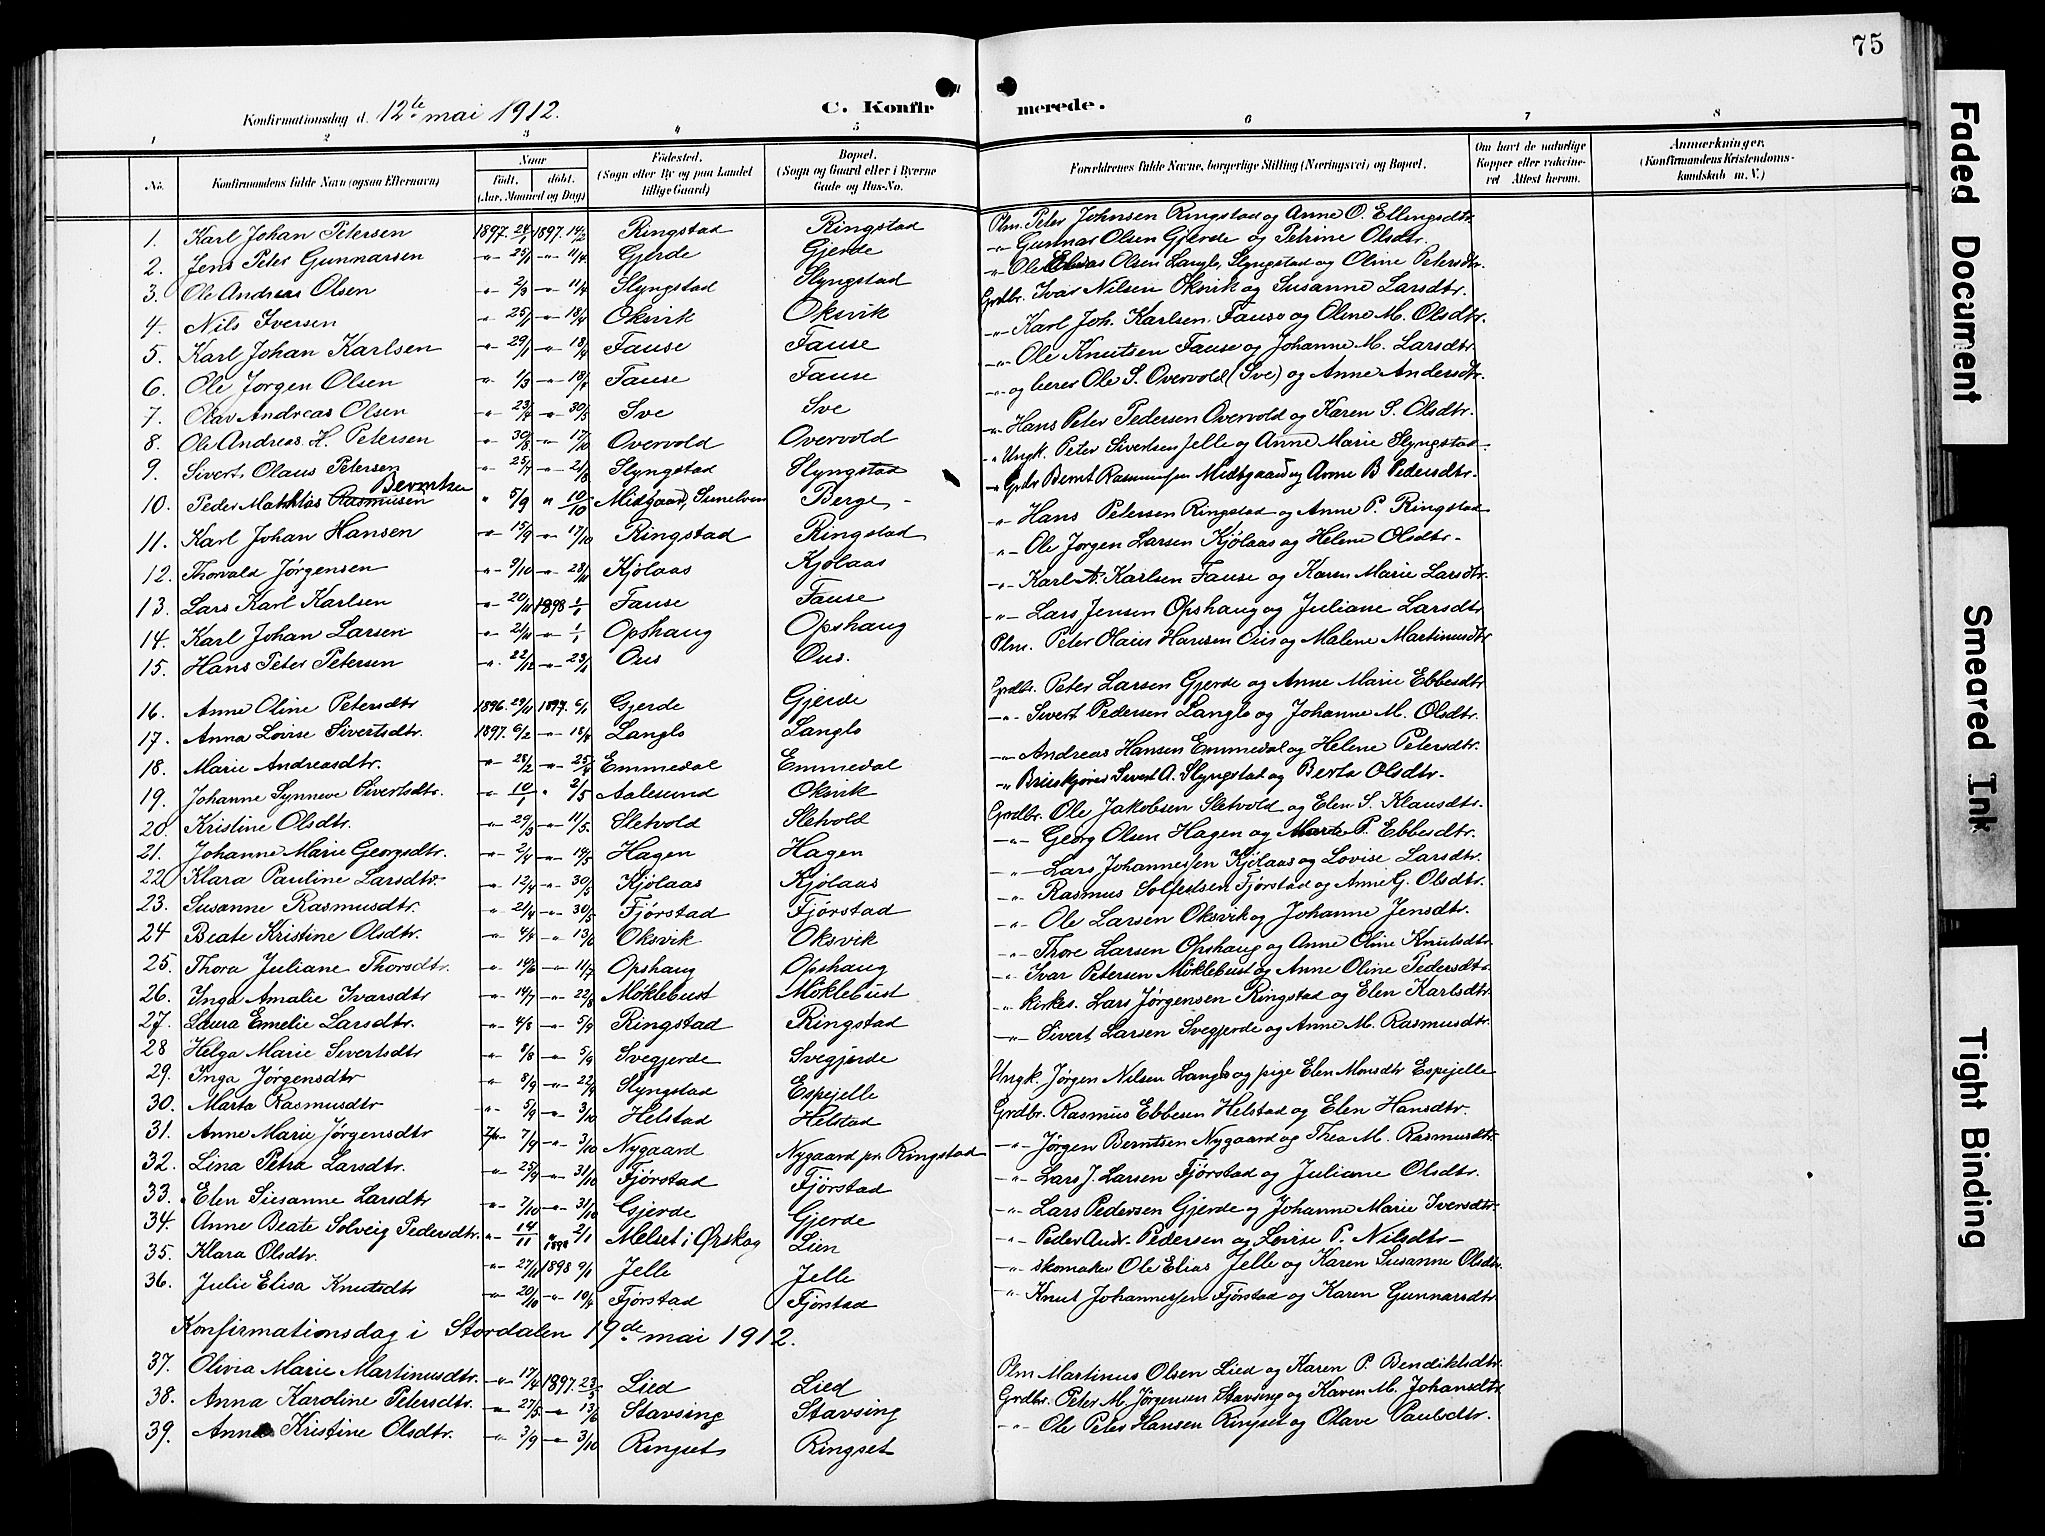 75
Konfirmationsdag d. 12te mai 1912.
C. Konfir merede.
1 2 3 4 5 6 7 8
No. Konfirmandens fulde Navn (ogsaa Efternavn)
Naar Født. døbt. (Aar, Maaned og Dag)
Fødested. (Sogn eller By og paa Landet tillige Gaard)
Bopæl. (Sogn og Gaard eller i Byerne Gade og Hus-No.
Forældrenes fulde Navne, borgerlige Stilling (Næringsvei) og Bopæl.
Om havt de naturlige Kopper eller vakcineret. Attest herom.
Anmærkninger. (Konfirmandens Kristendomskundskab m. V.)
1. Karl Johan Petersen 1897. 24/1 1897. 14/2 Ringstad Ringstad Plm. Peter Johnsen Ringstad og Anne O. Ellingsdtr.
2. Jens Peter Gunnarsen -"- -"- 11/4 Gjerde Gjerde -"- Gunnar Olsen Gjerde og Petrine Olsdtr.
3. Ole Andreas Olsen -"- 2/3 -"- 11/4 Slyngstad Slyngstad -"- Ole Olsen Langlo, Slyngstad og Oline Petersdtr.
4. Nils Iversen -"- 25/1 -"- 18/4 Oksvik Oksvik Grdbr. Ivar Nilsen Oksvik og Susanne Larsdtr.
5. Karl Johan Karlsen -"- 29/1 -"- 18/4 Fause Fause -"- Karl Joh. Karlsen Fause og Oline M. Olsdtr.
6. Ole Jørgen Olsen -"- 1/3 -"- 18/4 Fause Fause -"- Ole Knutsen Fause og Johanne M. Larsdtr.
7. Olav Andreas Olsen -"- 23/4 -"- 30/5 Sve Sve -"- og lærer Ole S. Overvold (Sve) og Anne Andersdtr.
8. Ole Andreas H. Petersen -"- 30/8 -"- 17/10 Overvold Overvold -"- Hans Peter Pedersen Overvold og Karen S. Olsdtr.
9. Sivert Olaus Petersen -"- 25/7 -"- 21/8 Slyngstad Slyngstad -"- Ungk. Peter Sivertsen Jelle og Anne Marie Slyngstad
10. Peder Mathias Rasmusen " 5/9 " 10/10 Midgaard, Sunelven Berge -"- Grdbr Bernt Rasmussen Midtgaard og Anne B Pedersdtr.
11. Karl Johan Hansen -"- 15/9 -"- 17/10 Ringstad Ringstad -"- Hans Petersen Ringstad og Anne P. Ringstad
12. Thorvald Jørgensen -"- 9/10 -"- 28/11 Kjølaas Kjølaas -"- Ole Jørgen Larsen Kjølaas og Helene Olsdtr.
13. Lars Karl Karlsen -"- 20/11 1898 1/1 Fause Fause -"- Karl A. Karlsen Fause og Karen Marie Larsdtr.
14. Karl Johan Larsen -"- 21/11 -"- 1/1 Opshaug Opshaug -"- Lars Jensen Opshaug og Juliane Larsdtr
15. Hans Peter Petersen -"- 22/12 -"- 23/1 Ous Ous. Plm. Peter Olaus Hansen Ous og Malene Martinusdtr
16. Anne Oline Petersdtr 1896. 29/11 1897. 6/1 Gjerde Gjerde Grdbr. Peter Larsen Gjerde og Anne Marie Ebbesdtr
17. Anna Lovise Sivertsdtr. 1897. 6/2 -"- 18/4 Langlo Langlo -"- Sivert Pedersen Langlo og Johanne M. Olsdtr.
18. Marie Andreasdtr. -"- 28/2 -"- 25/4 Emmedal Emmedal -"- Andreas Hansen Emmedal og Helene Petersdtr.
19. Johanne Synneve Sivertsdtr. -"- 10/1 " 2/5 Aalesund Oksvik -"- Sivert A. Slyngstad og Berta Olsdtr.
20. Kristine Olsdtr. -"- 29/3 -"- 11/5. Sletvold Sletvold Grdbr. Ole Jakobsen Sletvold og Elen S. Klausdtr.
21. Johanne Marie Georgsdtr. -"- 2/4 -"- 14/5 Hagen Hagen -"- Georg Olsen Hagen og Marte P. Ebbesdtr.
22. Klara Pauline Larsdtr. -"- 12/4 -"- 30/5 Kjølaas Kjølaas -"- Lars Johannessen Kjølaas og Lovise Larsdtr.
23. Susanne Rasmusdtr. -"- 21/4 -"- 30/5 Fjørstad Fjørstad -"- Rasmus Solfestsen Fjørstad og Anne G. Olsdtr.
24 Beate Kristine Olsdtr. -"- 4/4 -"- 13/6 Oksvik Oksvik -"- Ole Larsen Oksvik og Johanne Jensdtr.
25. Thora Juliane Thorsdtr. -"- 14/6 -"- 11/7 Opshaug Opshaug -"- Thore Larsen Opshaug og Anne Oline Knutsdtr.
26. Inga Amalie Ivarsdtr -"- 14/7 -"- 22/8 Møklebust Møklebust -"- Ivar Petersen Møklebust og Anne Oline Pedersdtr.
27. Laura Emelie Larsdtr. -"- 4/8 -"- 5/9 Ringstad Ringstad -"- kirkes. Lars Jørgensen Ringstad og Elen Karlsdtr.
28 Helga Marie Sivertsdtr -"- 8/8 -"- 5/9 Svegjerde Svegjerde -"- Sivert Larsen Svegjerde og Anne M. Rasmusdtr.
29. Inga Jørgensdtr -"- 8/9 -"- 22/9 Slyngstad Espejelle Ungk. Jørgen Nilsen Langlo og pige Elen Monsdtr Espejelle
30. Marta Rasmusdtr -"- 5/9 -"- 3/10 Helstad Helstad Grdbr. Rasmus Ebbesen Helstad og Elen Hansdtr.
31. Anne Marie Jørgensdtr 7/9 -"- 3/10 Nygaard Nygaard pr. Ringstad -"- Jørgen Berntsen Nygaard og Thea M. Rasmusdtr.
32. Lina Petra Larsdtr. -"- 25/9 -"- 31/10 Fjørstad Fjørstad -"- Lars J. Larsen Fjørstad og Juliane Olsdtr.
33. Elen Susanne Larsdtr -"- 7/10 -"- 31/10 Gjerde Gjerde -"- Lars Pedersen Gjerde og Johanne Marie Iversdtr.
34. Anne Beate Solveig Pedersdtr. -"- 14/11 1898 2/1 Melset i Ørskog Lien -"- Peder Andr. Pedersen og Lovise P. Nilsdtr
35. Klara Olsdtr. -"- 27/11 1898 9/1 Jelle Jelle -"- skomaker Ole Elias Jelle og Karen Susanne Olsdtr.
36. Julie Elisa Knutsdtr -"- 20/10 -"- 10/4 Fjørstad Fjørstad -"- Knut Johannessen Fjørstad og Karen Gunnarsdtr
Konfirmationsdag i Stordalen 19de mai 1912.
37. Olivia Marie Martinusdtr. -"- 17/4 1897. 23/5 Lied Lied Plm Martinus Olsen Lied og Karen P. Bendiktsdtr.
38. Anna Karoline Petersdtr. -"- 27/5. -"- 13/6 Stavsing Stavsing Grdbr. Peter M. Jørgensen Stavsing og Karen M. Johansdtr
39. Anna Kristine Olsdtr. -"- 3/9 -"- 3/10 Ringset Ringset -"- Ole Peter Hansen Ringset og Olave Paulsdtr.
Faded Document
Smeared Ink
Tight Binding